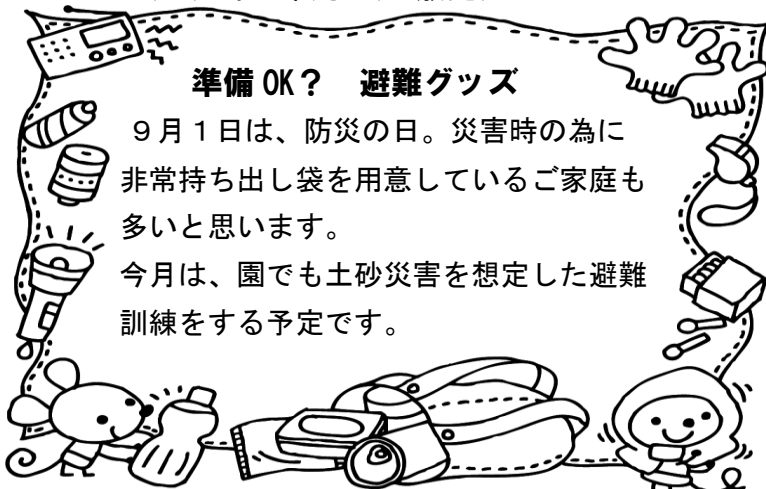 準備OK？　避難グッズ
９月１日は、防災の日。災害時の為に
非常持ち出し袋を用意しているご家庭も
多いと思います。
今月は、園でも土砂災害を想定した避難
訓練をする予定です。